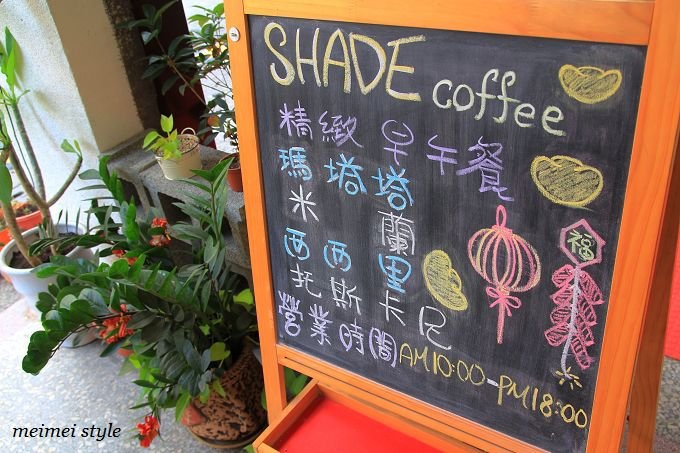 SHADE coffee
精緻早午餐
瑪塔塔
米蘭
西西里
托斯卡尼
營業時間AM10:00-PM18:00
福
meimei style